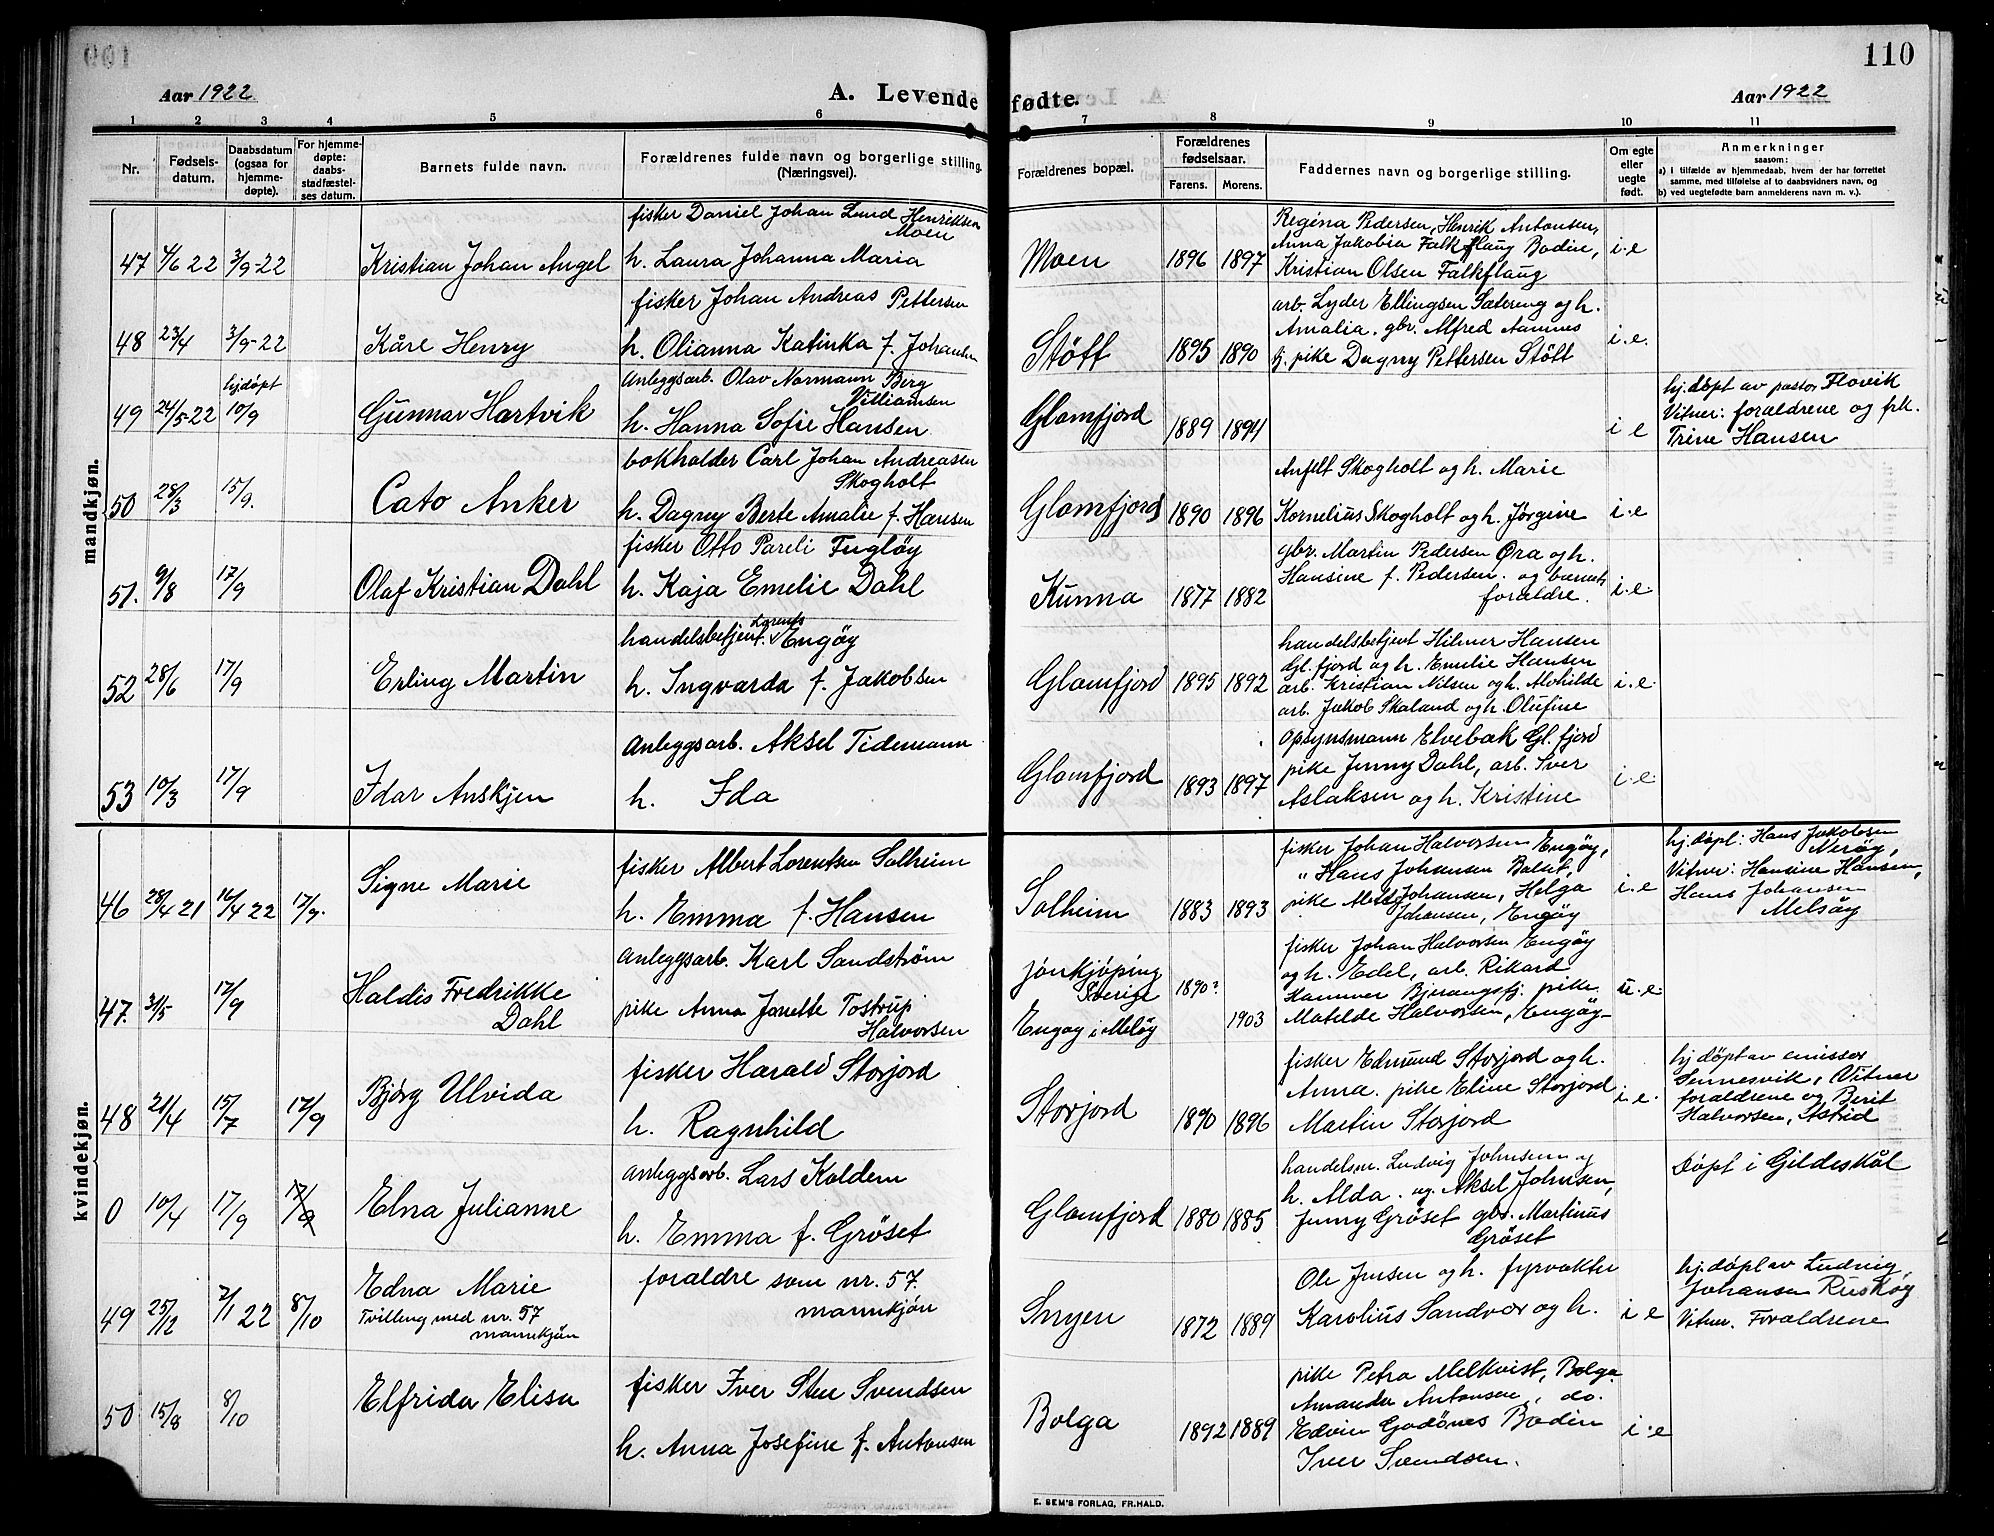 110
Aar 1922
A. Levende fødte.
Aar 1922
1 2 3 4 5 6 7 8 9 10 11
Nr.
Fødsels-
datum.
Daabsdatum
(ogsaa for
hjemme-
døpte).
For hjemme-
døpte:
daabs-
stadfæstel-
ses datum.
Barnets fulde navn.
Forældrenes fulde navn og borgerlige stilling.
(Næringsvei).
Forældrenes bopæl.
Forældrenes
fødselsaar.
Farens. Morens.
Faddernes navn og borgerlige stilling.
Om egte
eller
uegte
født.
Anmerkninger
saasom:
a) i tilfælde av hjemmedaab, hvem der har forrettet
samme, med tilføielse af to daabsvidners navn, og
b) ved uegtefødte barn anmelderens navn m. v.).
mandkjøn.
47 4/6 22 3/9-22
Kristian Johan Angel
fisker Daniel Johan Lund Henriksen
Moen
h. Laura Johanna Maria
Moen
1896 1897
Regina Pedersen, Henrik Antonsen,
Anna Jakobia Falkflaug Bodin,
Kristian Olsen Falkflaug
i-e
48 23/4 3/9-22
Kåre Henry
fisker Johan Andreas Pettersen
h. Olianna Katinka f. Johansen
Stött
1895 1890
arb. Lyder Ellingsen Sætereng og h.
Amalia. gbr. Alfred Aamnes
tj. pike Dagny Pettersen Stött
i.e.
49 24/5-22
hjdøpt
10/9
Gunnar Hartvik
Anleggsarb. Olav Normann Berg
Villiamsen
h. Hanna Sofie Hansen
Glomfjord
1889 1894
i e
hj. døpt av pastor Flovik
Vitner: foraldrene og frk.
Trine Hansen
50 28/3 15/9.
Cato Anker
bokholder Carl Johan Andreasen
Skogholt
h. Dagny Berte Amalie f. Hansen
Glomfjord
1890 1896
Anfelt Skogholt og h. Marie
Kornelius Skogholt og h. Jørgine
i-e
51. 9/8 17/9
Olaf Kristian Dahl
fisker Otto Pareli Fugløy
h. Kaja Emelie Dahl
Kunna
1877 1882
gbr. Martin Pedersen Øra og h.
Hansine f. Pedersen. og barnets
foraldre.
i.e
52 28/6 17/9
Erling Martin
handelsbetjent. Lorents Engøy
h. Ingvarda f. Jakobsen
Glomfjord
1895 1892
handelsbetjent Hilmer Hansen
Gl.fjord og h. Emelie Hansen
arb. Kristian Nilsen og h. Alvhilde
arb. Jakob Skaland og h. Olufine
i.e
53 10/3 17/9
Idar Anskjen
Anleggsarb. Aksel Tidemann
h. Ida
Glomfjord
1893 1897
Opsynsmann Elvebak Gl.fjord
pike Jenny Dahl, arb. Iver
Aslaksen og h. Kristine
i-e
kvindekjøn.
46 28/4 21 16/4 22 17/9.
Signe Marie
fisker Albert Lorentsen Solheim
h. Emma f. Hansen
Solheim
1883 1893
fisker Johan Halvorsen Engøy,
" Hans Johansen Bolset,
pike Mette Johansen, Helga
Johansen, Engøy
i-e
hj.døpt: Hans Jakobsen
Nerøy,
Vitner: Hansine Hansen,
Hans Johansen
Meløy
47. 31/5 17/9
Haldis Fredrikke
Dahl
Anleggsarb. Karl Sandstrøm
pike Anna Janette Tostrup
Halvorsen
Jönkjöping
Sverige
Engøy i Meløy
1890?
1903
fisker Johan Halvorsen Engøy
og h. Edel, arb. Rikard
Hammer Bjerangsfj. pike
Matilde Halvorsen, Engøy-
u.e.
48 21/4 15/7 17/9
Bjørg Ulvida
fisker Harald Storjord
h. Ragnhild
Storjord
1890 1896
fisker Edmund Storjord og h.
Anna. pike Eline Storjord
Martin Storjord
i-e.
hj døpt av emissær
Sennesvik, Vitner
foraldrene og Berit
Halvorsen, Astrid
0 10/4 17/9 17/9
Elna Julianne
anleggsarb. Lars Koldem
h. Emma f. Grøset
Glomfjord
1880 1885
handelsm. Ludvig Johnsen og
h. Alda. og Aksel Johnsen,
Jenny Grøset gbr. Martinus
Grøset
Døpt i Gildeskål
49 25/12 2/1 22 8/10
Edna Marie
Tvilling med nr. 57
mannkjøn
foraldre som nr. 57.
mannkjøn
Inyen
1872 1889
Ole Jensen og h. fyrvakter
Karolius Sandvær og h.
i e
hj.døpt av Ludvig
Johansen Riskøy
Vitner. Foraldrene
50 15/8 8/10
Elfrida Elisa
fisker Iver Sten Svendsen
h. Anna Josefine f. Antonsen
Bolga
1892 1889
pike Petra Melkvist, Bolga.
Amanda Antonsen, do.
Edvin Godønes Bodin
Iver Svendsen.
i-e
E. SEM'S FORLAG, FR.HALD.